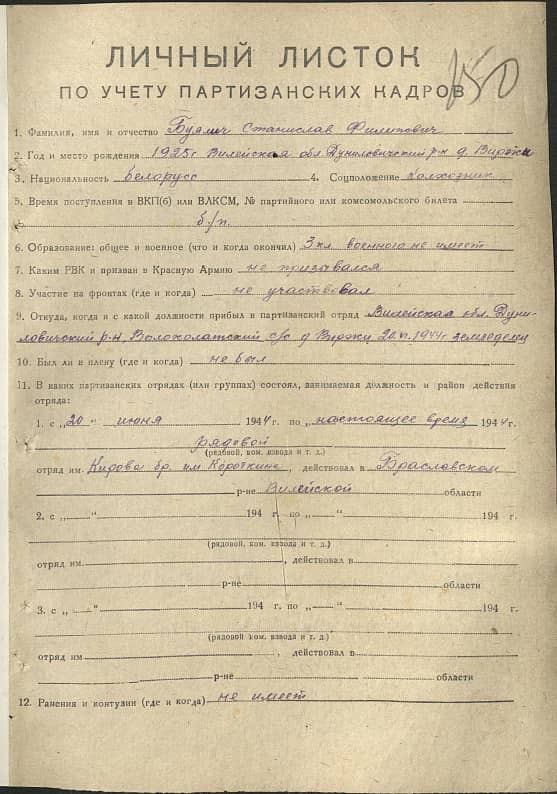 150
ЛИЧНЫЙ ЛИСТОК
ПО УЧЕТУ ПАРТИЗАНСКИХ КАДРОВ
1. Фамилия, имя и отчество Буялич Станислав Филипович
2. Год и место рождения 1925г Вилейская обл Дуниловичский р-н д. Виржи
3. Национальность белорусс 4. Соцположение колхозник
5. Время поступления в ВКП(б) или ВЛКСМ, № партийного или комсомольского билета
б/п.
6. Образование: общее и военное (что и когда окончил) 3 кл. военного не имеет
7. Каким РВК и призван в Красную Армию не призывался
8. Участие на фронтах (где и когда) не участвовал
9. Откуда, когда и с какой должности прибыл в партизанский отряд Вилейская обл. Дуни-
ловичский р-н, Волоколатский с/с д Виржи 20.VI.1944г земледелец
10. Был ли в плену (где и когда) не был
11. В каких партизанских отрядах (или группах) состоял, занимаемая должность и район действия
отряда:
1. с „20“ июня 1944 г. по „настоящее время 1944г.
рядовой
(рядовой, ком. взвода и т. д.)
отряд им. Кирова бр. им Короткина, действовал в Браславском
р-не Вилейской области
2. с „ “ 194 г. по „ “ 194 г.
(рядовой, ком. взвода и т. д.)
отряд им. , действовал в
р-не области
3. с „ “ 194 г. по „ “ 194 г.
(рядовой, ком. взвода и т. д.)
отряд им , действовал в
р-не области
12. Ранения и контузии (где и когда) не имеет